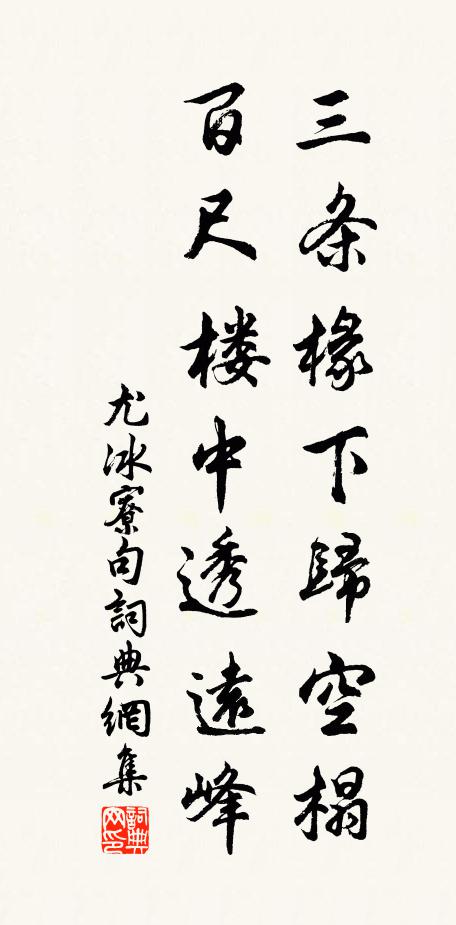 三条椽下歸空榻
百尺楼中透遠峰
尤冰寮句詞典網集
詞典网印